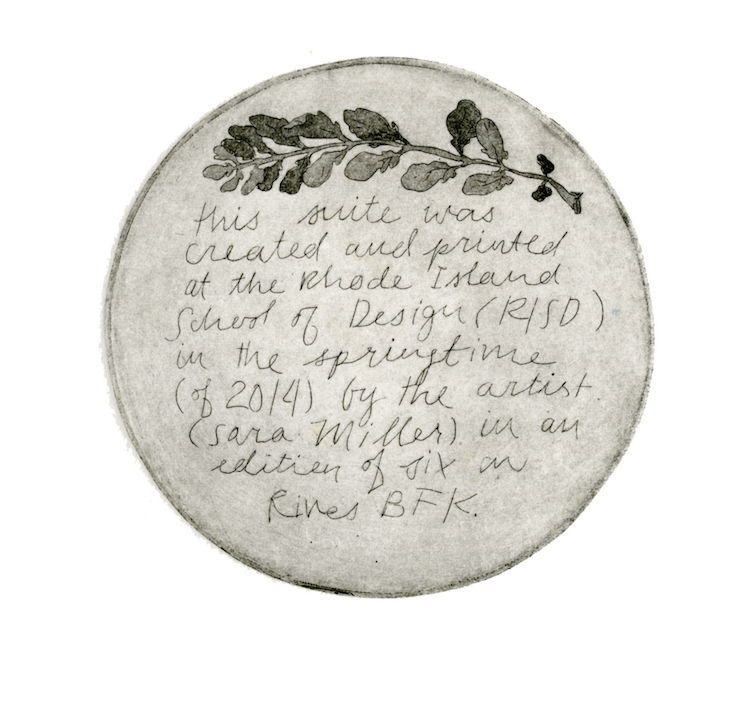 this suite was
created and printed
at the Rhode Island
School of Design (RISD)
in the springtime
(of 2014) by the artist
(sara Miller) in an
edition of six on
Rives BFK.